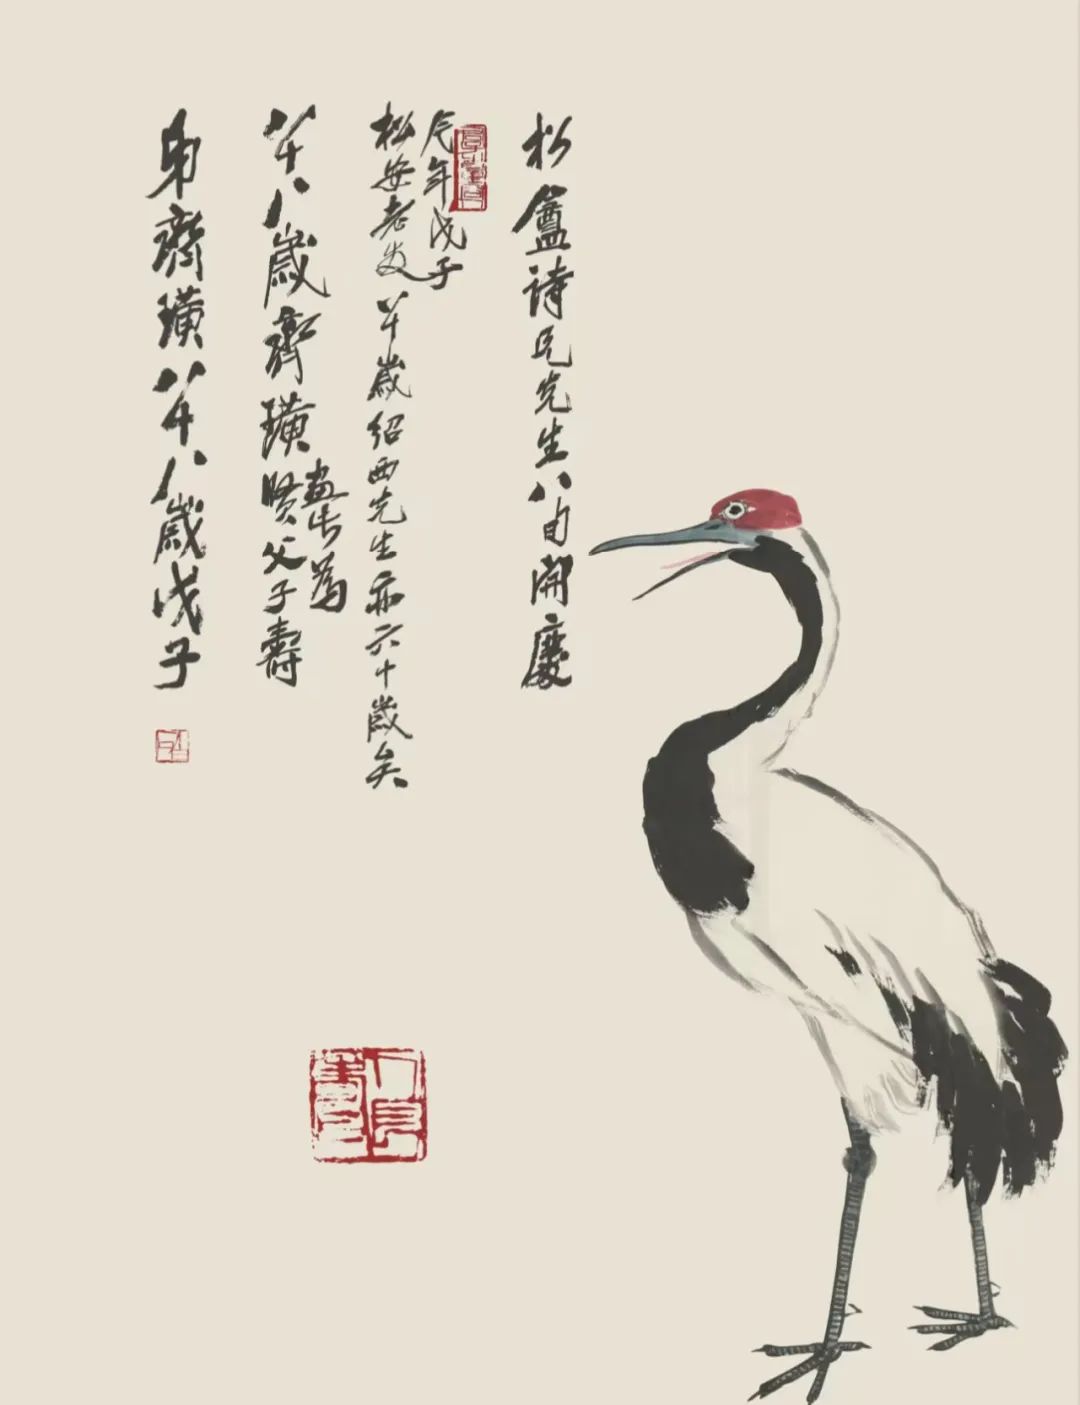 松盦詩兄先生八旬開慶
戊子
松安老友八十歲紹西先生亦六十歲矣
畫此為
八十八歲齊璜賢父子壽
弟齊璜八十八歲戊子